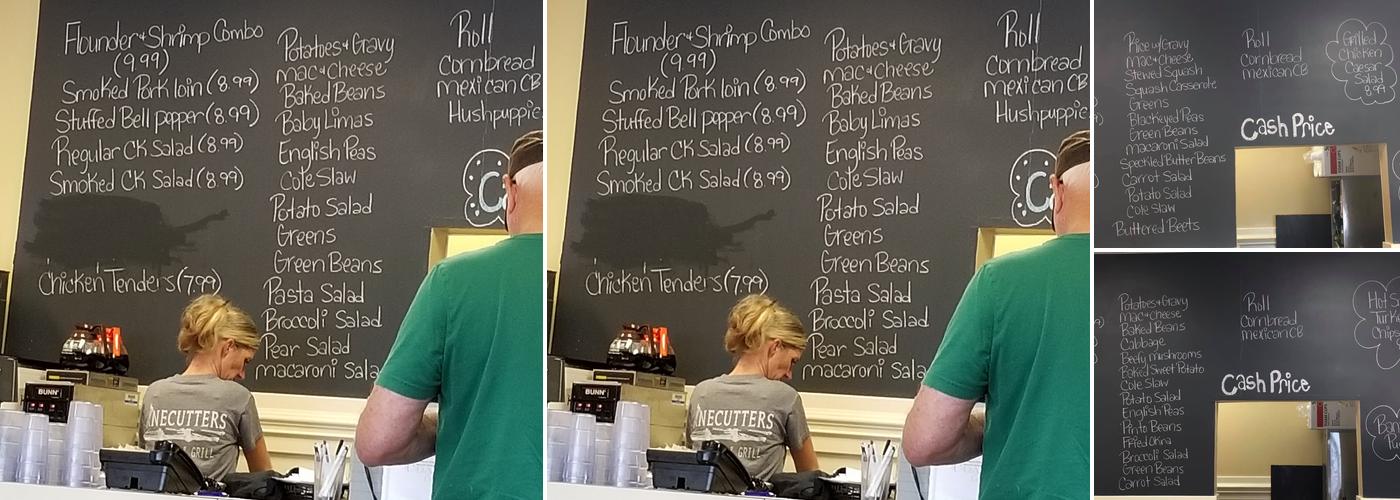 Flounder & Shrimp Combo
(9.99)
Smoked Pork loin (8.99)
Stuffed Bell pepper (8.99)
Regular CK Salad (8.99)
Smoked CK Salad (8.99)
Chicken Tenders (7.99)
Potatoes & Gravy
mac & Cheese
Baked Beans
Baby Limas
English Peas
Cole Slaw
Potato Salad
Greens
Green Beans
Pasta Salad
Broccoli Salad
Pear Salad
macaroni Sala
Roll
Cornbread
mexican CB
Hushpuppie
BUNN
NECUTTERS
GRILL
Flounder & Shrimp Combo
(9.99)
Smoked Pork loin (8.99)
Stuffed Bell pepper (8.99)
Regular CK Salad (8.99)
Smoked CK Salad (8.99)
Chicken Tenders (7.99)
Potatoes & Gravy
mac & Cheese
Baked Beans
Baby Limas
English Peas
Cole Slaw
Potato Salad
Greens
Green Beans
Pasta Salad
Broccoli Salad
Pear Salad
macaroni Sala
Roll
Cornbread
mexican CB
Hushpuppies
BUNN
NECUTTERS
GRILL
Rice w/Gravy
mac & Cheese
Stewed Squash
Squash Casserole
Greens
Blackeyed Peas
Green Beans
macaroni Salad
Speckled Butter Beans
Carrot Salad
Potato Salad
Cole Slaw
Buttered Beets
Roll
Cornbread
mexican CB
Grilled
Chicken
Caesar
Salad
8.99
Cash Price
Potatoes & Gravy
mac & cheese
Baked Beans
Cabbage
Beefy mushrooms
Baked Sweet Potato
Cole Slaw
Potato Salad
English Peas
Pinto Beans
Fried Okra
Broccoli Salad
Green Beans
Carrot Salad
Roll
Cornbread
mexican CB
Hot S
Turk
Chips
Cash Price
Ban